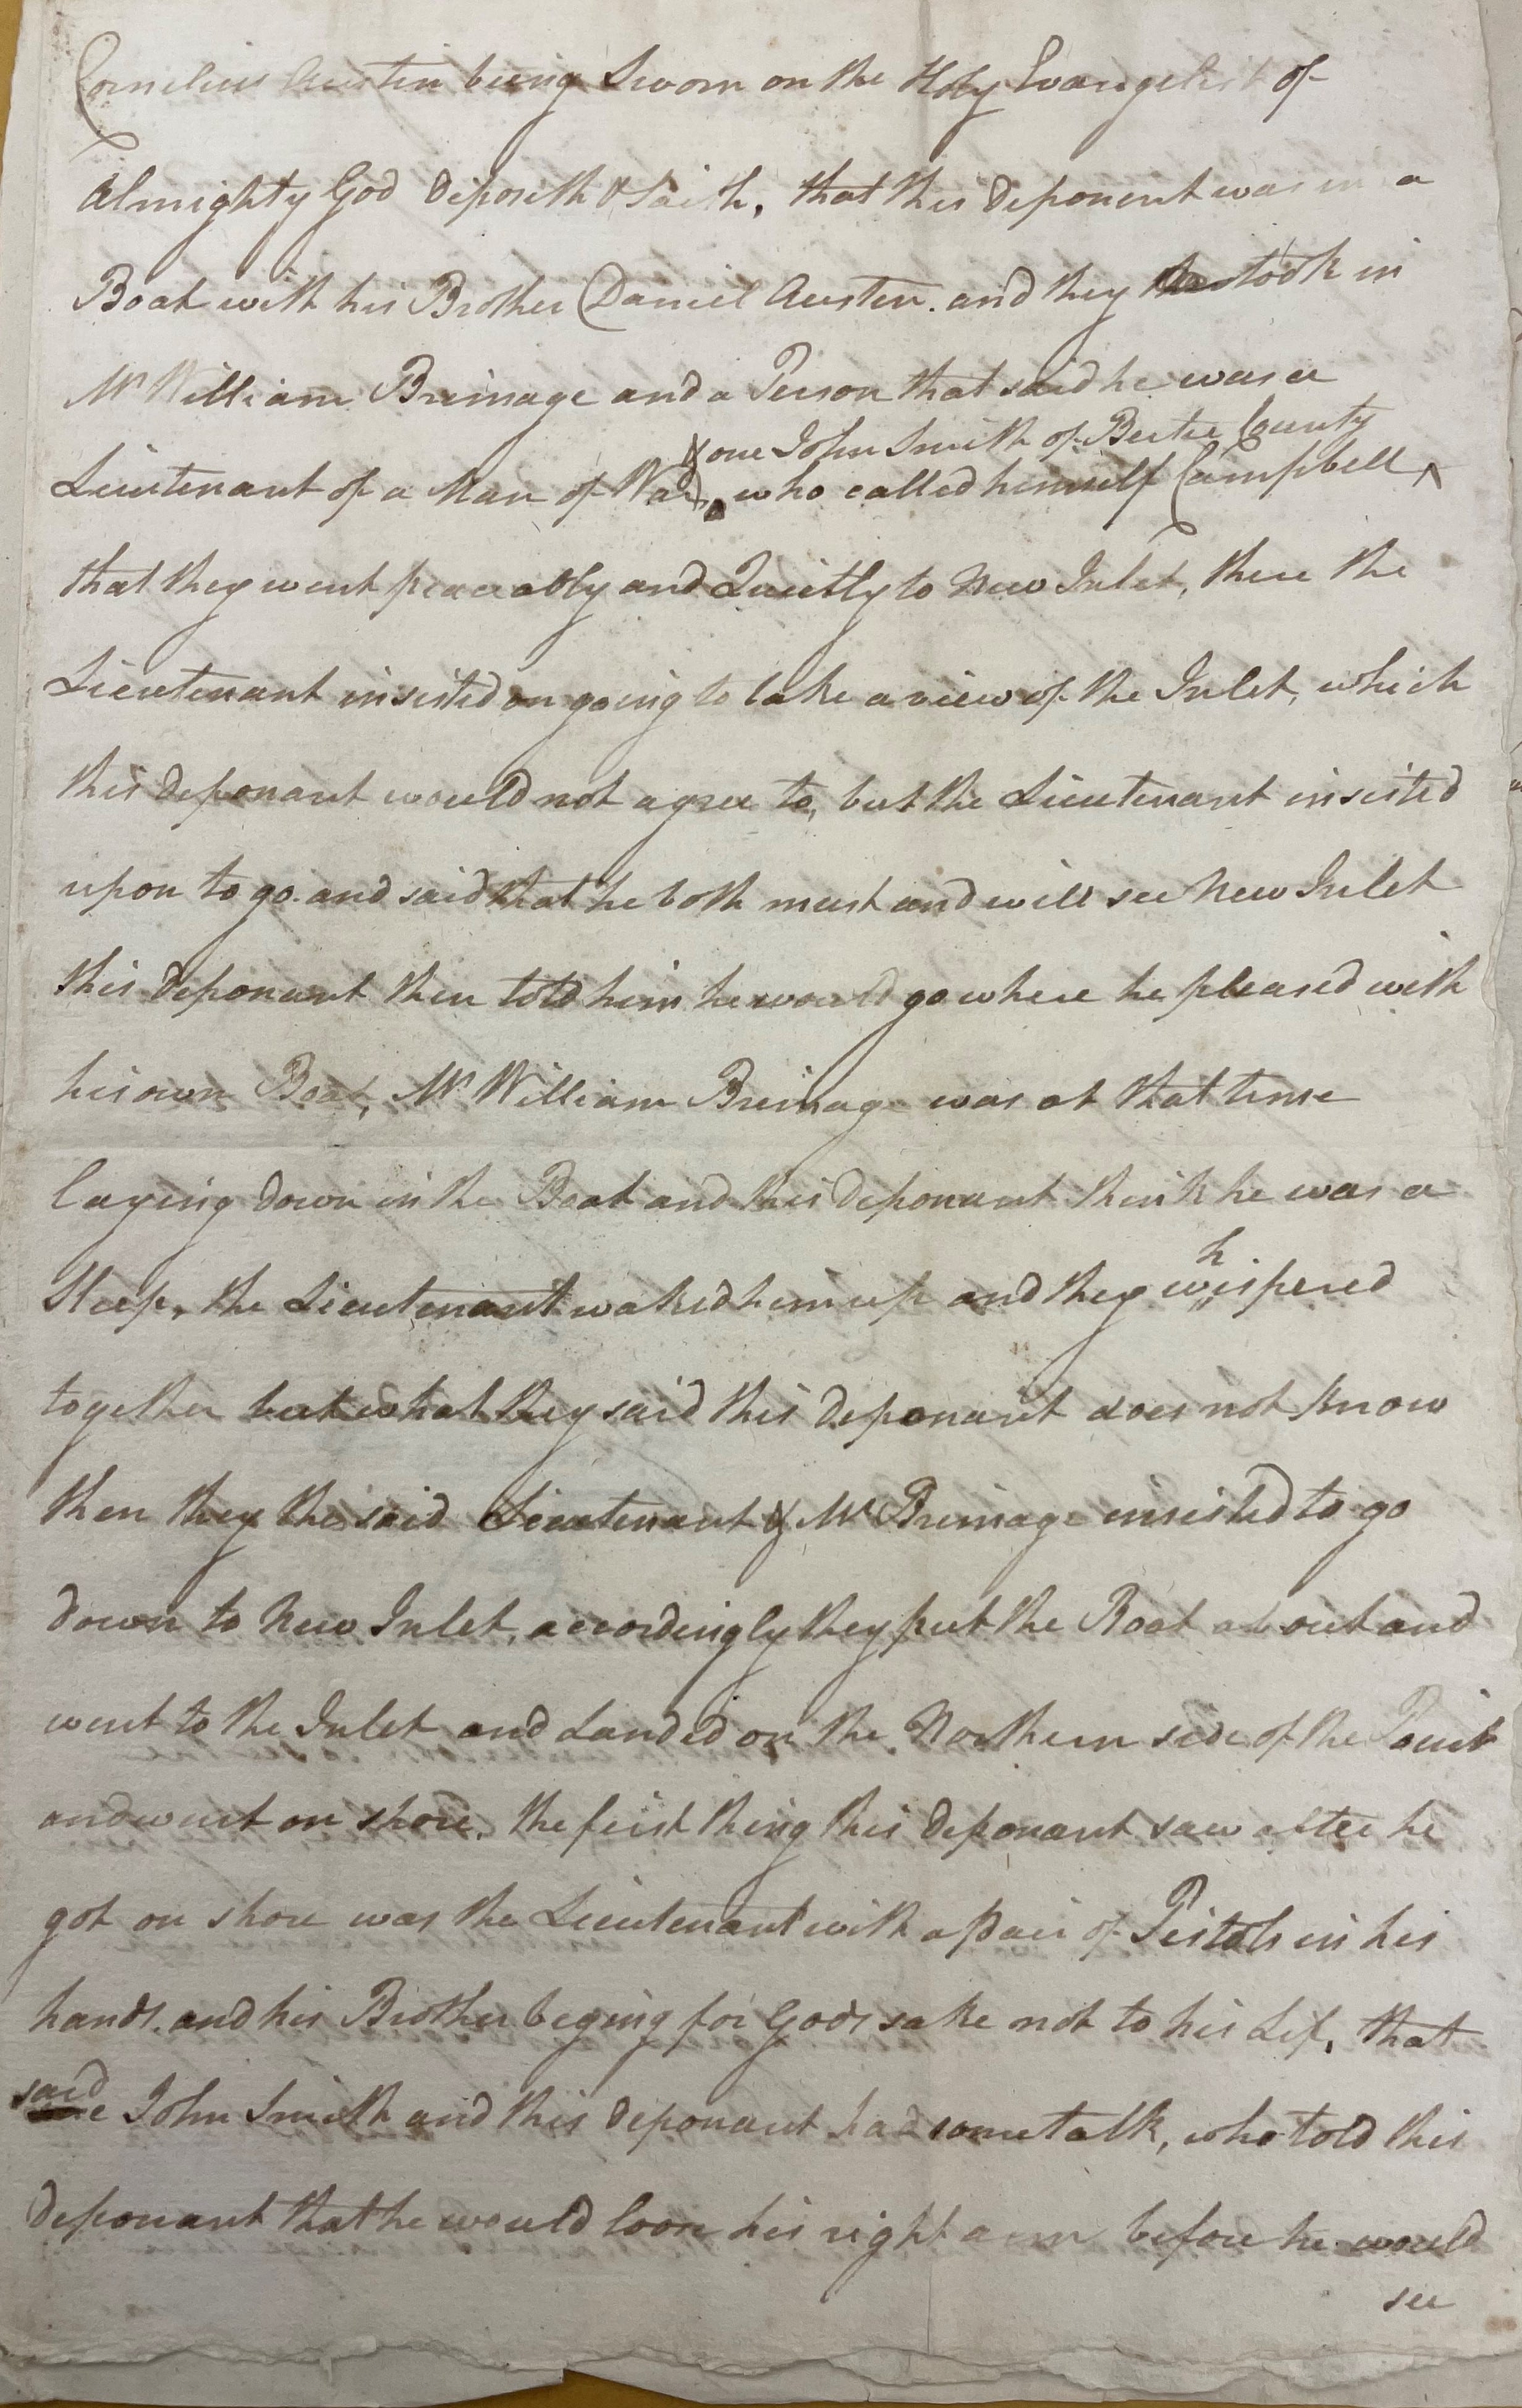 Cornelius Austin being Sworn on the Holy Evangelist of
Almighty God deposeth & Saith, that this deponent was in a
Boat with his Brother Daniel Austen. and they took in
Mr William Brimage and a Person that said he was a
& one John Smith of Bertie County
Lieutenant of a Man of War, who called himself Campbell ^
that they went peaceably and Quietly to New Inlet, there the
Lieutenant insisted on going to take a view of the Inlet, which
this deponant would not agree to, but the Lieutenant insisted
upon to go. and said that he both must and will see New Inlet
this deponant then told him he would go where he pleased with
his own Boat, Mr William Brimage was at that time
laying down in the Boat and this deponant think he was a
h
Sleep, the Lieutenant waked him up and they wispered
together but what they said this deponant does not know
then they the said Lieutenant & Mr Brimage insisted to go
down to New Inlet, accordingly they put the Boat about and
went to the Inlet and Landed on the Northern side of the Point
and went on shore. the first thing this deponant saw after he
got on shore was the Lieutenant with a pair of Pistols in his
hands. and his Brother beging for Gods sake not to his Lif, that
said
John Smith and this deponant had some talk, who told this
deponant that he would loose his right arm before he would
see